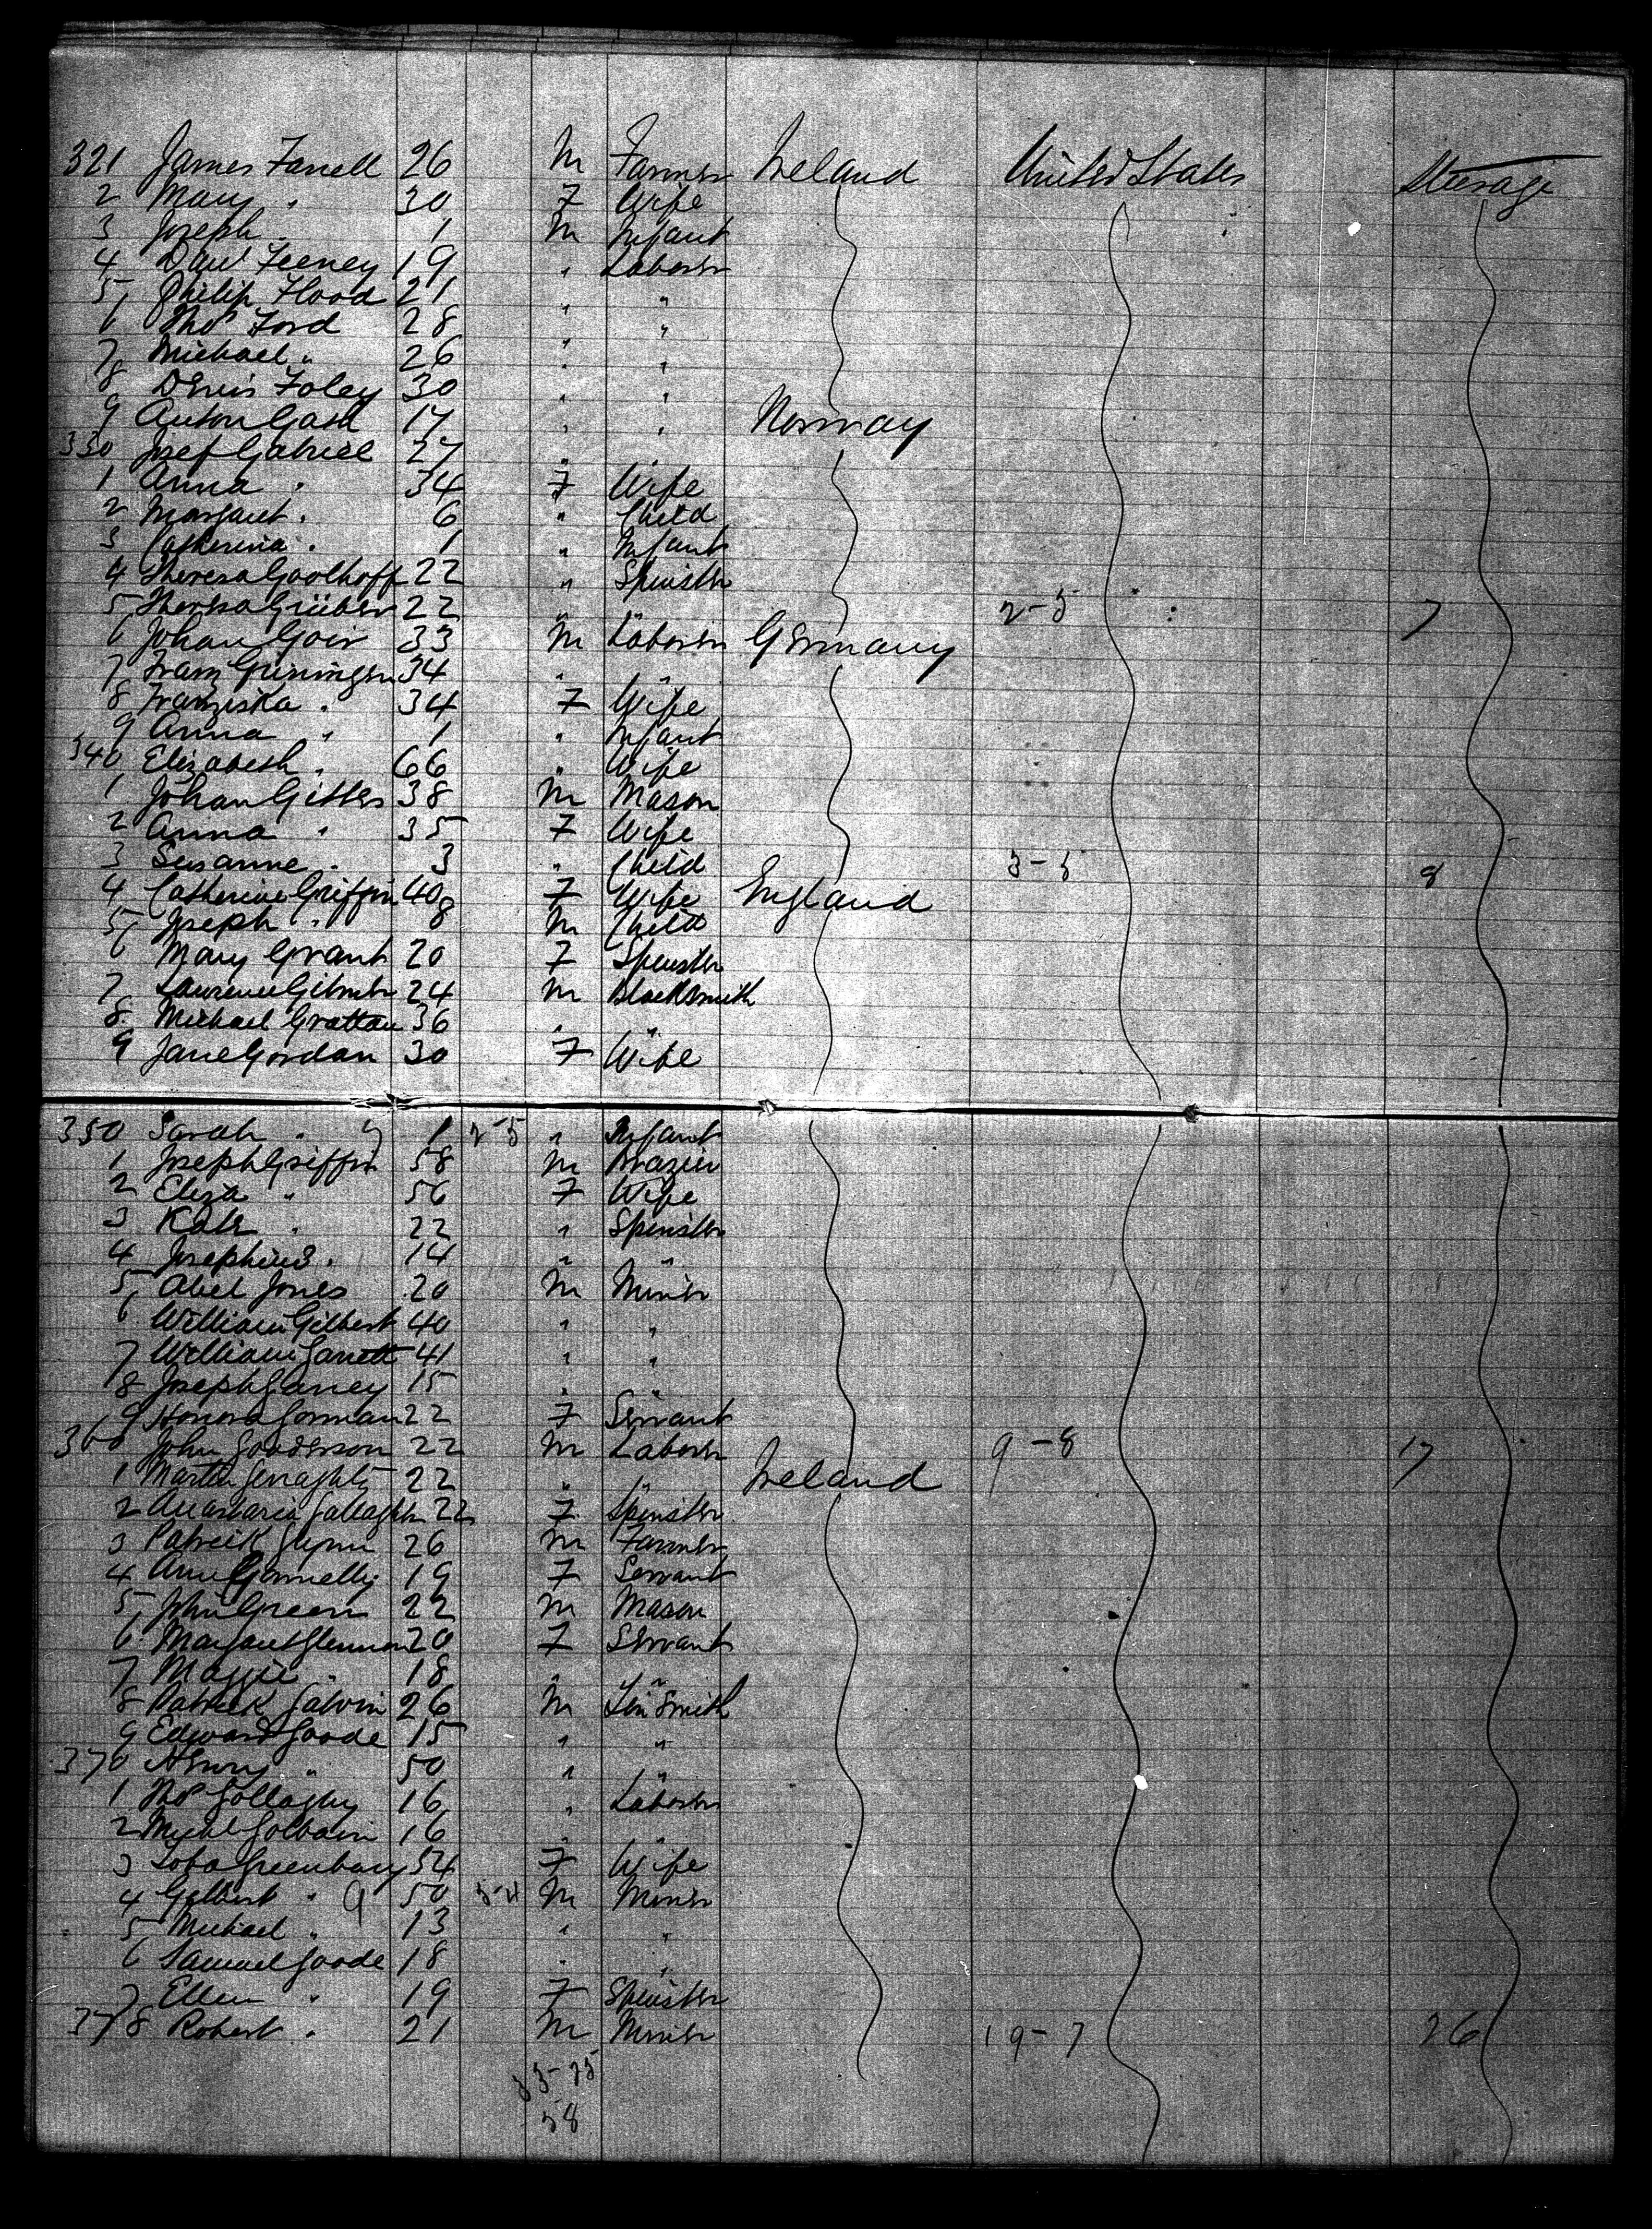 321 James Farrell 26 M Farmer Ireland United States Steerage
2 Mary " 30 F Wife
3 Joseph " 1 M Infant
4 Danl Feeney 19 " Laborer
5 Philip Flood 21 " "
6 Thos Ford 28 " "
7 Michael " 26 " "
8 Denis Foley 30 " "
9 Anton 17 " " Norway
330 Josef Gabriel 27 "
1 Anna " 34 F Wife
2 Margaret " 6 " Child
3 Catherina " 1 " Infant
4 Theresa 22 " Spinster
5 Theresa Grüber 22 " " 2-5 7
6 Johan 33 M Laborer Germany
7 Franz 34 " "
8 Franziska " 34 F Wife
9 Anna " 1 " Infant
340 Elizabeth " 66 " Wife
1 Johan 38 M Mason
2 Anna " 35 F Wife
3 Susanne " 3 " Child 3-5 8
4 Catherine Griffin 40 F Wife England
5 Joseph " 8 M Child
6 Mary Grant 20 F Spinster
7 Lawrence 24 M Blacksmith
8 Michael Grattan 36 " "
9 Jane Gordan 30 F Wife
350 Sarah " 1 2-5 " Infant
1 Joseph Griffin 58 M Brazier
2 Eliza " 56 F Wife
3 Kate " 22 " Spinster
4 Josephine " 14 " "
5 Abel Jones 20 M Miner
6 William Gilbert 40 " "
7 William Garrett 41 " "
8 Joseph Garvey 15 " "
9 Honora Gorman 22 F Servant
360 John Gooderson 22 M Laborer 9-8 17
1 Martin Gerraghty 22 " " Ireland
2 Anastasia Gallagher 22 F Spinster
3 Patrick Glynn 26 M Farmer
4 Ann 19 F Servant
5 John Green 22 M Mason
6 Margaret Glennon 20 F Servant
7 Maggie " 18 " "
8 Patrick Galvin 26 M Tin Smith
9 Edward Goode 15 " "
370 Henry " 50 " "
1 Thos 16 " Laborer
2 Michl 16 " "
3 Greenbury 54 F Wife
4 Gilbert " 9 50 M Miner
5 Michael " 13 " "
6 Samuel Goode 18 " "
7 Ellen " 19 F Spinster
378 Robert " 21 M Miner 19-7 26
33-25
58